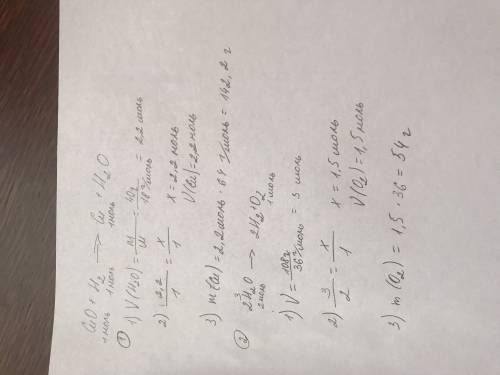 CuO + H₂ → Cu + H₂O
1моль 1моль 1моль
① 1) V(H₂O) = m/M = 40г/18 г/моль = 2,2 моль
2) 2,2/1 = x/1 x = 2,2 моль
V(Cu) = 2,2 моль
3) m(Cu) = 2,2 моль · 64 г/моль = 142,2 г
② 2H₂O → 2H₂ + O₂
3
2моль 1моль
1) V = 108г/36 г/моль = 3 моль
2) 3/2 = x/1 x = 1,5 моль
V(O₂) = 1,5 моль
3) m(O₂) = 1,5 · 36 = 54 г